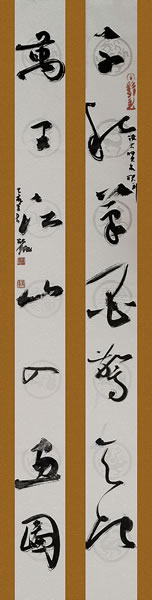 千秋筆墨驚天地
萬里江山入畫圖